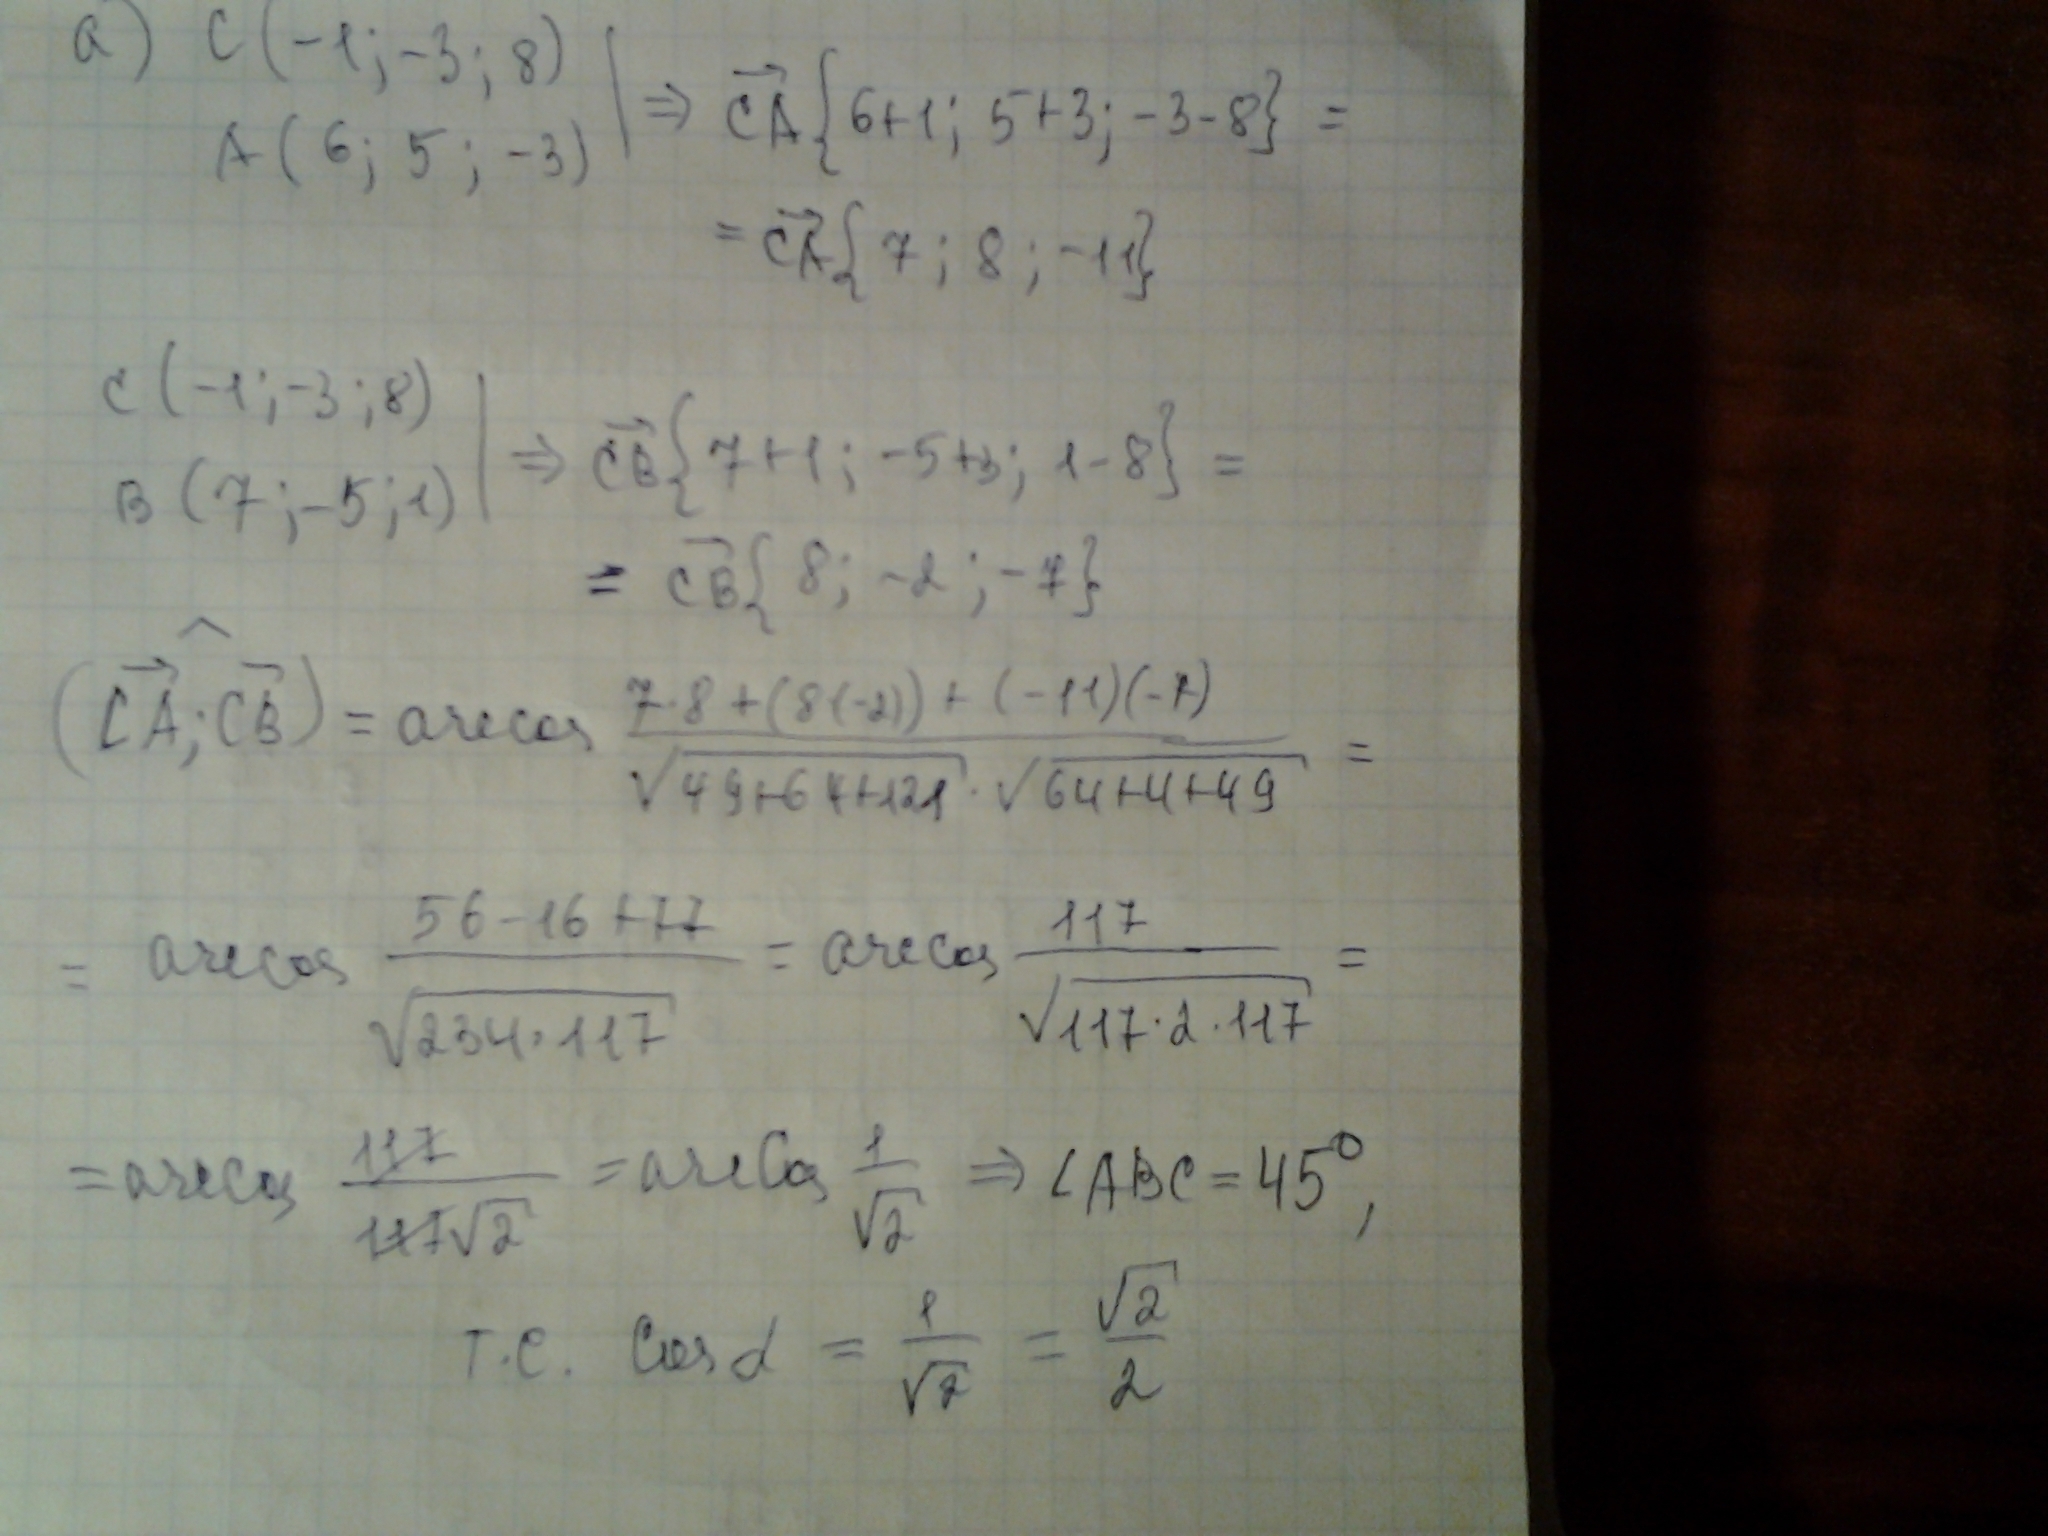 а) C(-1;-3;8) | ⇒ CA⃗{6+1; 5+3; -3-8} =
A(6; 5; -3)
= CA⃗{7; 8; -11}
C(-1;-3;8) | ⇒ CB⃗{7+1; -5+3; 1-8} =
B(7;-5;1)
= CB⃗{8; -2; -7}
(CA⃗;^CB⃗) = arccos (7·8+(8(-2))+(-11)(-7))/(√(49+64+121)·√(64+4+49)) =
= arccos (56-16+77)/√(234·117) = arccos 117/√(117·2·117) =
= arccos 117/(117√2) = arccos 1/√2 ⇒ ∠ABC = 45°,
т.е. cos α = 1/√2 = √2/2